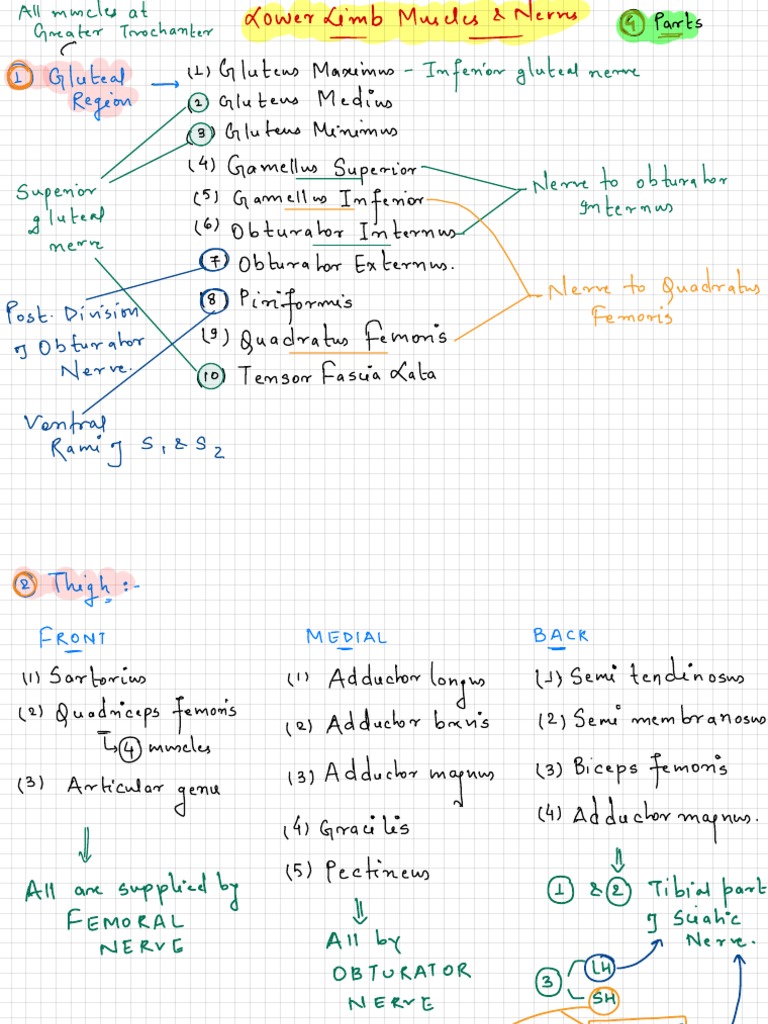 All muscles at
Greater Trochanter
Lower Limb Muscles & Nerves
4 Parts
1 Gluteal
Region
(1) Gluteus Maximus - Inferior gluteal nerve
2 Gluteus Medius
3 Gluteus Minimus
(4) Gamellus Superior
(5) Gamellus Inferior
(6) Obturator Internus
7 Obturator Externus.
8 Piriformis
(9) Quadratus Femoris
10 Tensor Fascia Lata
Superior
gluteal
nerve
Nerve to obturator
Internus
Nerve to Quadratus
Femoris
Post. Division
of Obturator
Nerve.
Ventral
Rami of S1 & S2
2 Thigh :-
FRONT
(1) Sartorius
(2) Quadriceps femoris
4 muscles
(3) Articular genu
All are supplied by
FEMORAL
NERVE
MEDIAL
(1) Adductor longus
(2) Adductor brevis
(3) Adductor magnus
(4) Gracilis
(5) Pectineus
All by
OBTURATOR
NERVE
BACK
(1) Semi tendinosus
(2) Semi membranosus
(3) Biceps femoris
(4) Adductor magnus.
1 & 2 Tibial part
of Sciatic
Nerve.
3 LH
SH